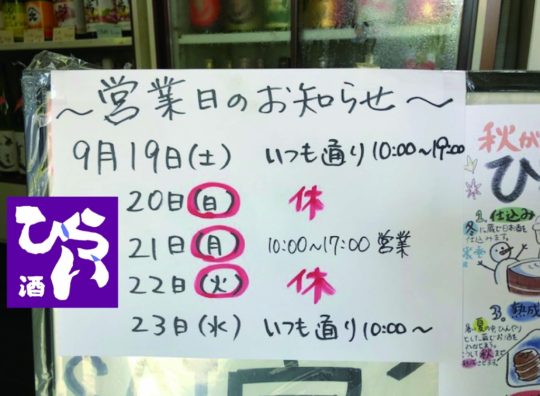 ～営業日のお知らせ～
9月19日(土) いつも通り10:00～19:00
20日(日) 休
21日(月) 10:00～17:00 営業
22日(火) 休
23日(水) いつも通り10:00～
ひらい
酒
秋が
ひ
仕込み
熟成